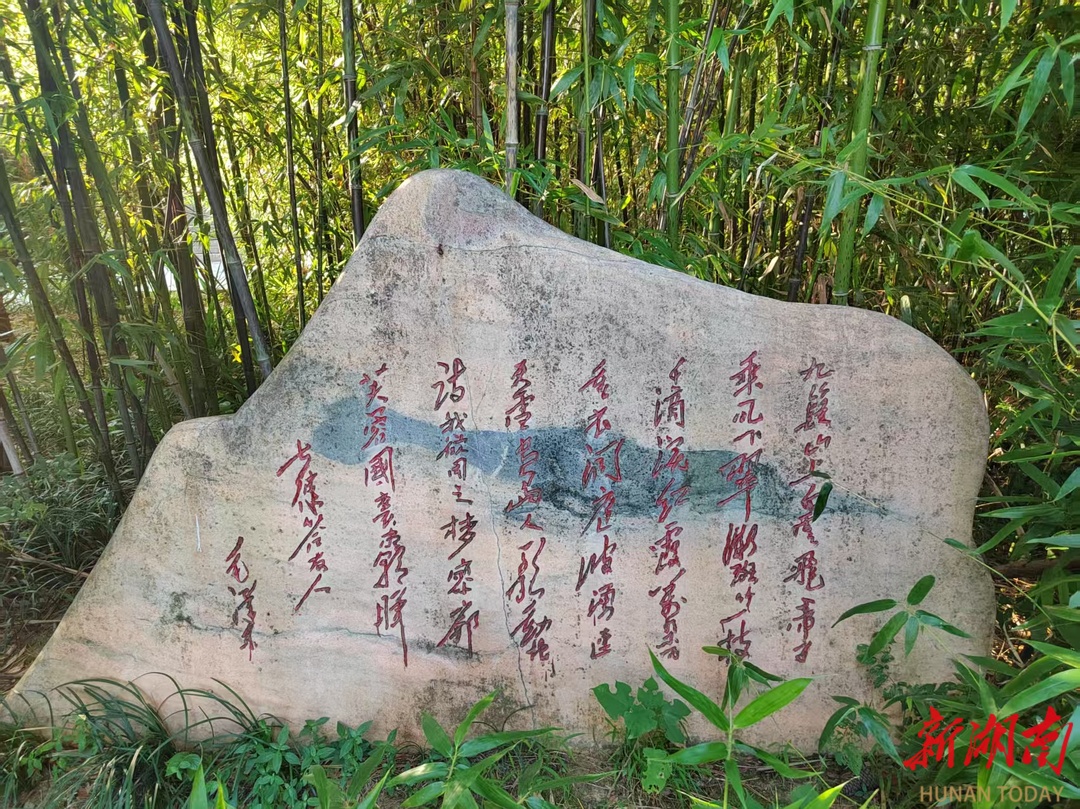 九嶷山上白雲飛帝子
乘風下翠微斑竹一枝
千滴淚紅霞萬朵百
重衣洞庭波湧連
天雪長島人歌動地
詩我欲因之夢寥廓
芙蓉國裏盡朝暉
七律答友人
毛澤東
新湖南
HUNAN TODAY